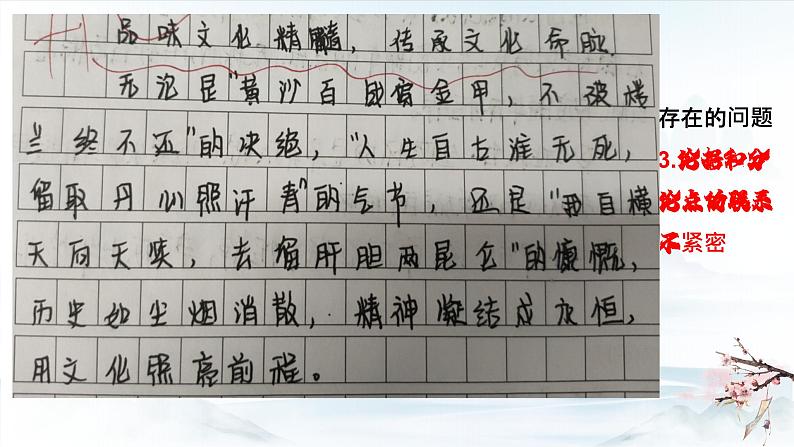 品味文化精髓，传承文化命脉.
无论是"黄沙百战穿金甲，不破楼
兰终不还"的决绝，"人生自古谁无死，
留取丹心照汗青"的气节，还是"我自横
天向天笑，去留肝胆两昆仑"的慷慨，
历史如尘烟消散，精神凝结成永恒，
用文化照亮前程。
存在的问题
3.论据和分
论点的联系
不紧密